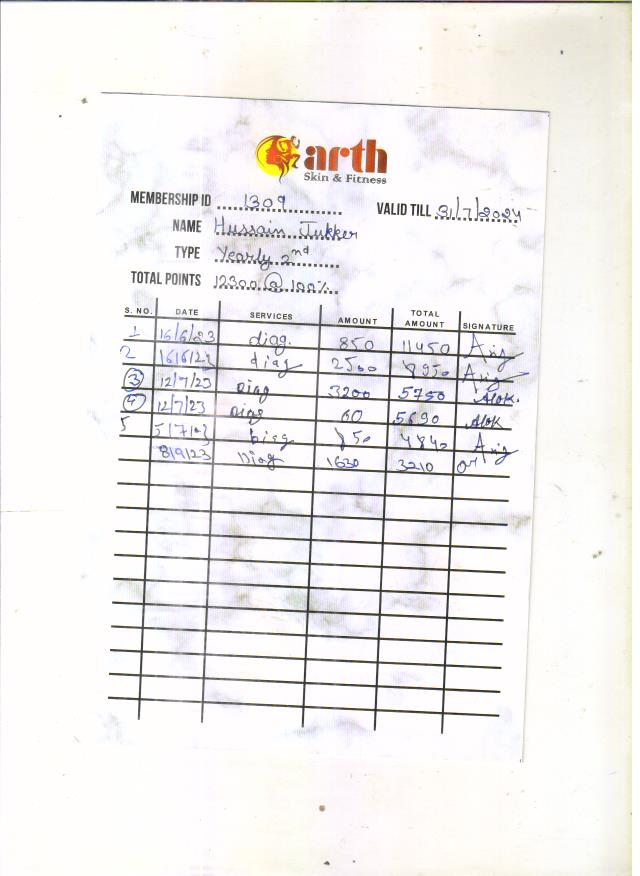 arth
Skin & Fitness
MEMBERSHIP ID 1309
VALID TILL 31/7/2024
NAME Hussain Tukker
TYPE Yearly 2nd
TOTAL POINTS 12300 @ 100%
S. NO. DATE SERVICES AMOUNT TOTAL AMOUNT SIGNATURE
1 16/6/23 diag. 850 11450
2 16/6/23 diag 2500 8950
3 12/7/23 Diag 3200 5750 Alok.
4 12/7/23 Diag 60 5690 Alok
5 Diag 850 4840
8/9/23 Diag 1630 3210